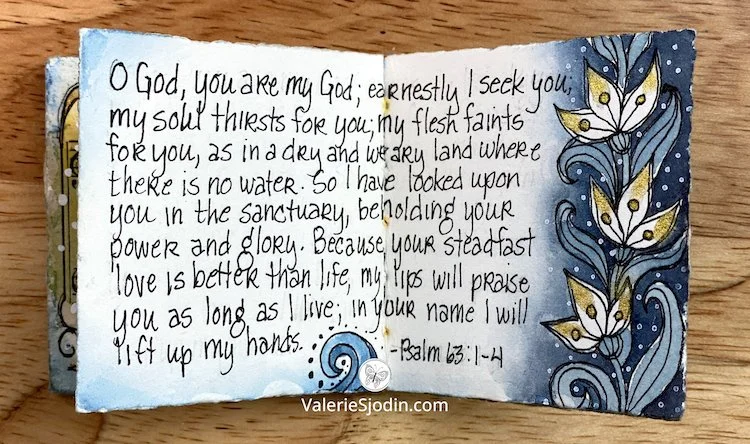 O God, you are my God; earnestly I seek you;
my soul thirsts for you; my flesh faints
for you, as in a dry and weary land where
there is no water. So I have looked upon
you in the sanctuary, beholding your
power and glory. Because your steadfast
love is better than life, my lips will praise
you as long as I live; in your name I will
lift up my hands.
-Psalm 63:1-4
ValerieSjodin.com